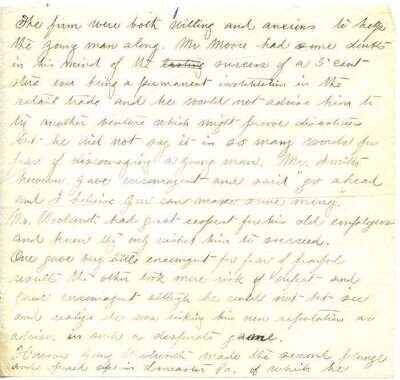 The firm were both willing and anxious to help
the young man along. Mr Moore had some doubts
in his mind of the lasting success of a 5 cent
store ever being a permanent institution in the
retail trade and he would not advise him to
try another venture which might prove disastrous
but he did not say it in so many words for
fear of discouraging a young man. Mr. Smith
however gave encouragent and said "go ahead
and I believe you can make some money."
Mr. Woolworth had great respect for his old employers
and knew they only wished him to succeed.
One gave very little encouragent for fear of
results the other took more risk of and
gave encouragent although he could not but see
and realize he was risking his own reputation as
adviser in such a desperate game.
However young Woolworth made the second plunge
and opened up in Lancaster Pa. of which he